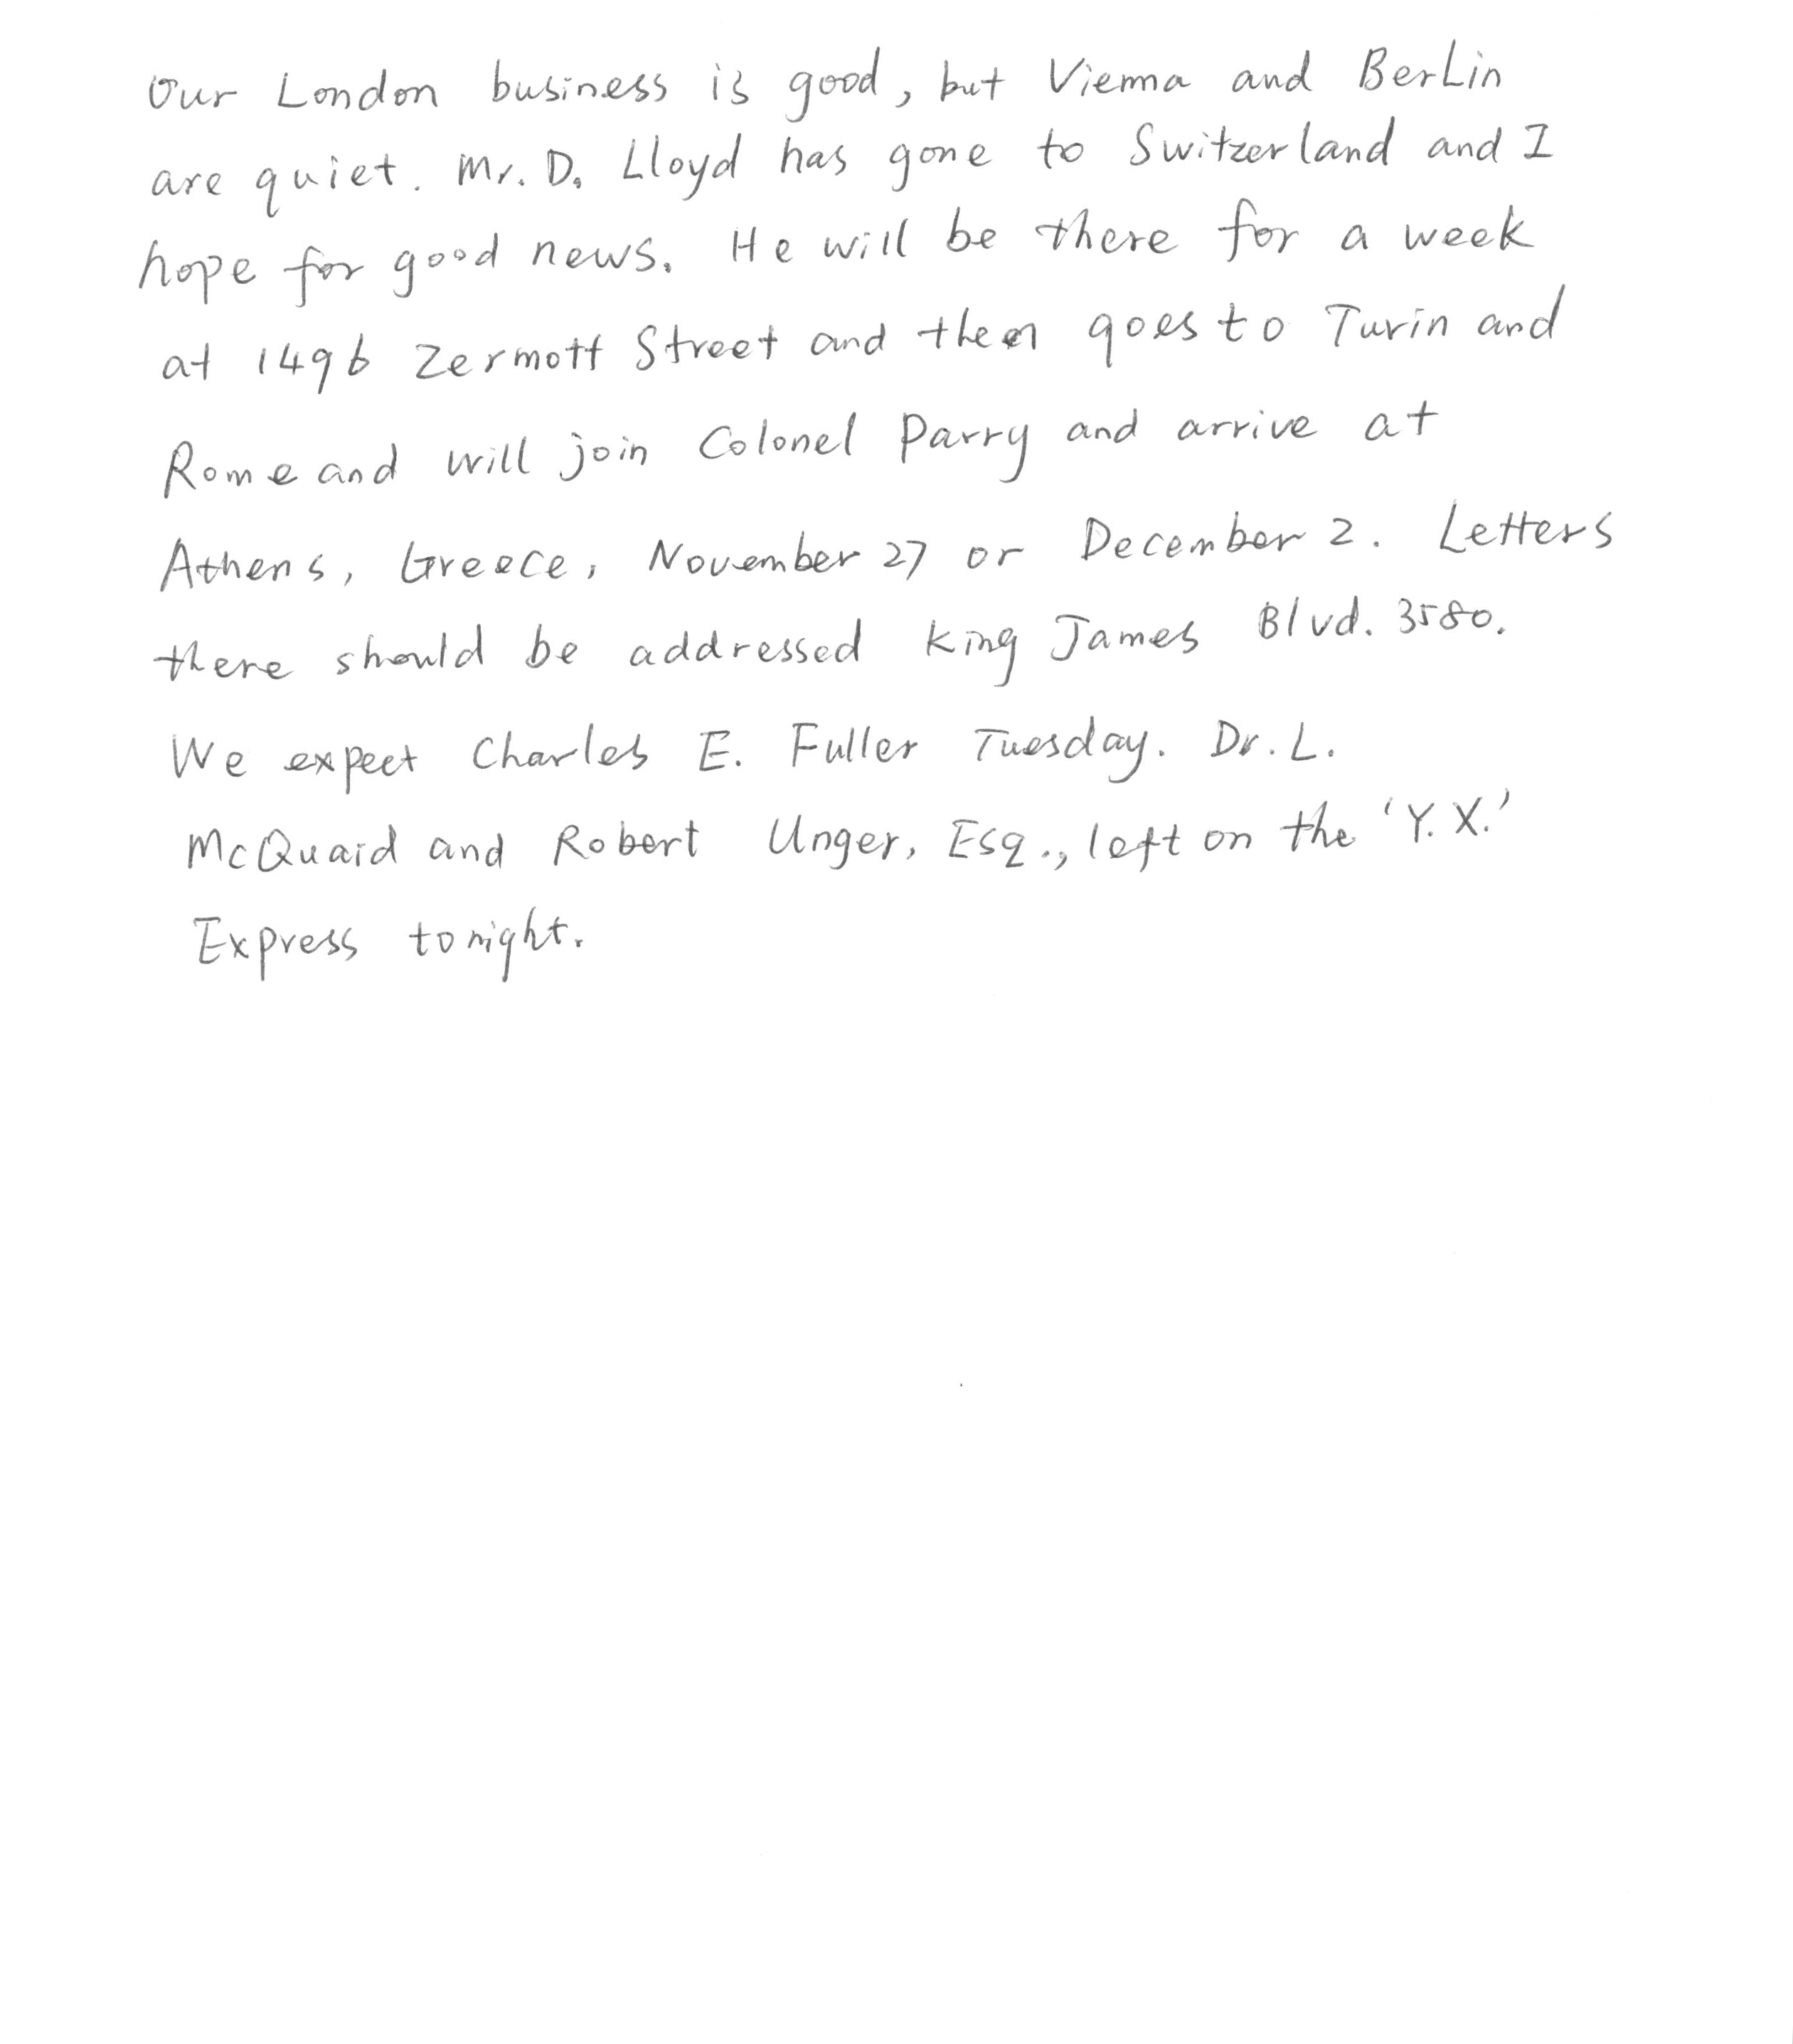 Our London business is good, but Vienna and BerLin
are quiet. Mr. D. Lloyd has gone to Switzerland and I
hope for good news. He will be there for a week
at 1496 Zermott Street and then goes to Turin and
Rome and will join Colonel Parry and arrive at
Athens, Greece, November 27 or December 2. Letters
there should be addressed King James Blvd. 3580.
We expect Charles E. Fuller Tuesday. Dr. L.
McQuaid and Robert Unger, Esq., left on the 'Y.X.'
Express tonight.